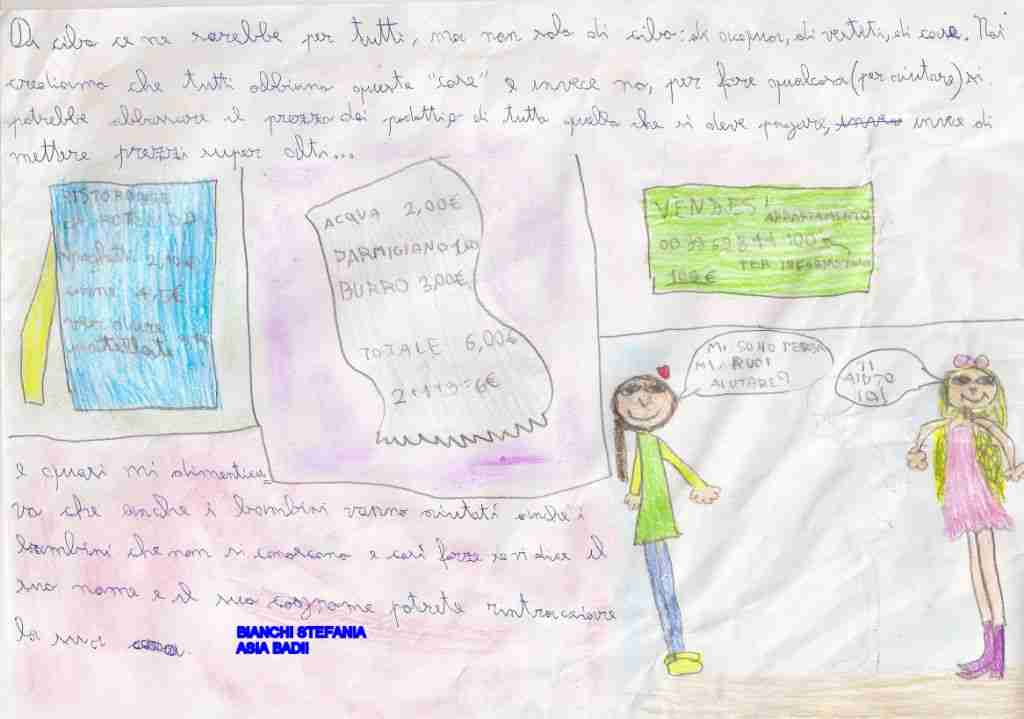 Di cibo ce ne sarebbe per tutti, ma non solo di cibo: di acqua, di vestiti, di case. Noi
crediamo che tutti abbiano queste "cose" e invece no, per fare qualcosa (per aiutare) si
potrebbe abbassare il prezzo dei prodotti e di tutto quello che si deve pagare, invece di
mettere prezzi super alti...
RISTORANTE
spaghetti
carne
verdure
ACQUA 2,00€
PARMIGIANO 1,00
BURRO 3,00€
TOTALE 6,00€
2+1+3=6€
VENDESI APPARTAMENTO
PER INFORMAZIONI
100€
MI SONO PERSA
MI VUOI
AIUTARE?
TI
AIUTO
IO!
e quasi mi dimentica
va che anche i bambini vanno aiutati anche i
bambini che non si conoscono e così forze se vi dice il
suo nome e il suo cognome potrete rintracciare
la sua
BIANCHI STEFANIA
ASIA BADII